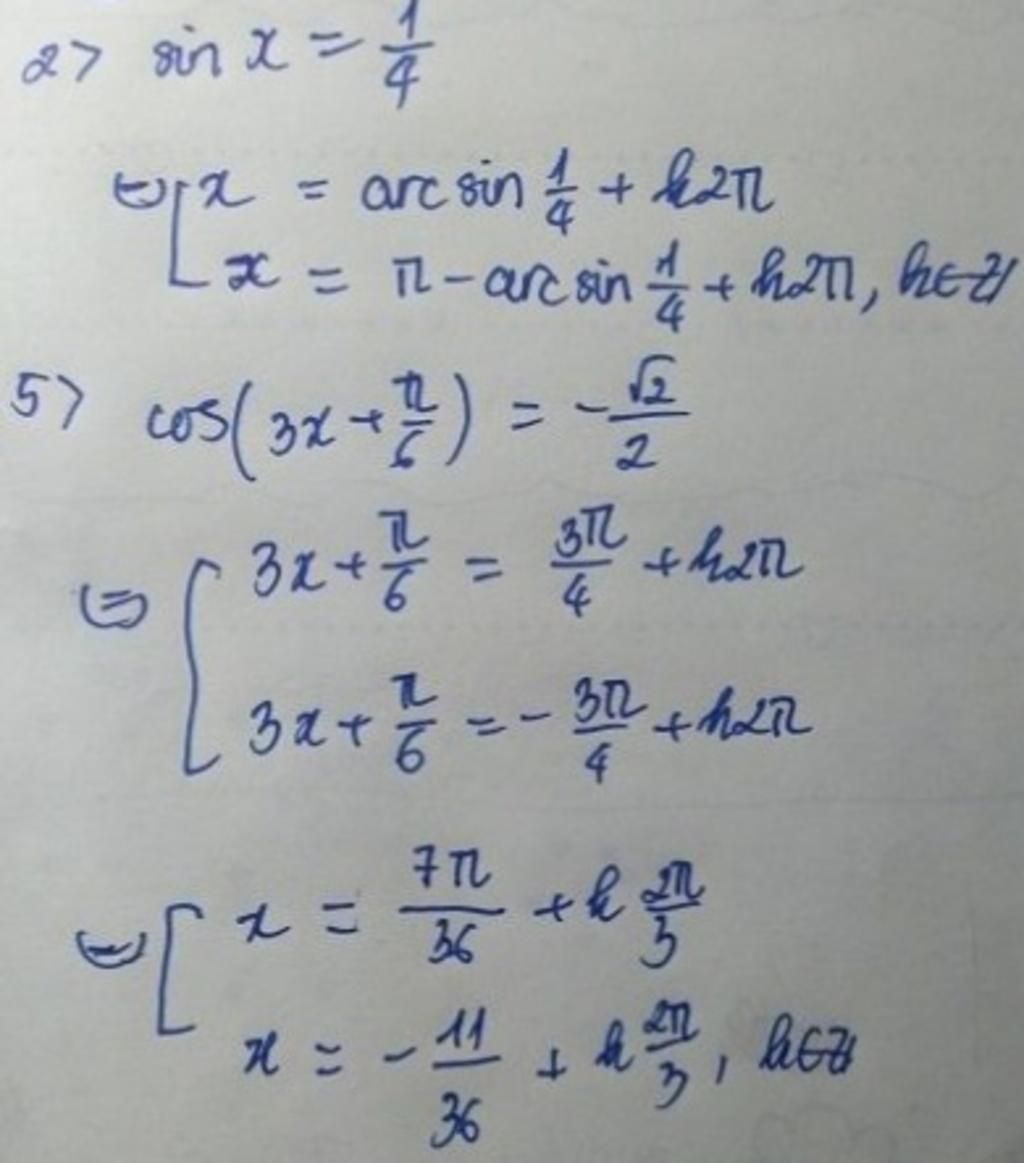 2> sin x = 1/4
⇔ [ x = arc sin 1/4 + k2π
x = π - arc sin 1/4 + k2π, k∈Z
5> cos(3x + π/6) = -√2/2
⇔ [ 3x + π/6 = 3π/4 + k2π
3x + π/6 = - 3π/4 + k2π
⇔ [ x = 7π/36 + k 2π/3
x = - 11/36 + k 2π/3, k∈Z